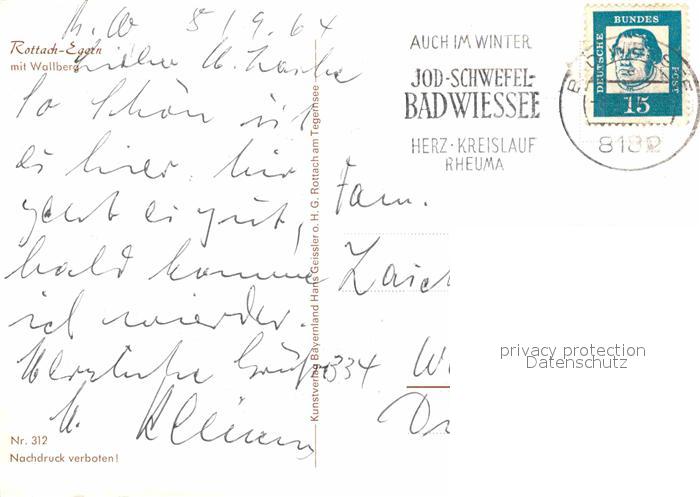 5/9.64
Rottach-Egern
mit Wallberg
So schön ist
es hier, mir
geht es gut,
bald komme
ich wieder.
Herzliche Grüße
Nr. 312
Nachdruck verboten!
Kunstverlag Bayernland Hans Geissler o. H. G. Rottach am Tegernsee
AUCH IM WINTER
JOD-SCHWEFEL-
BAD WIESSEE
HERZ·KREISLAUF
RHEUMA
DEUTSCHE BUNDES POST
15
8182
Fam.
334
privacy protection
Datenschutz